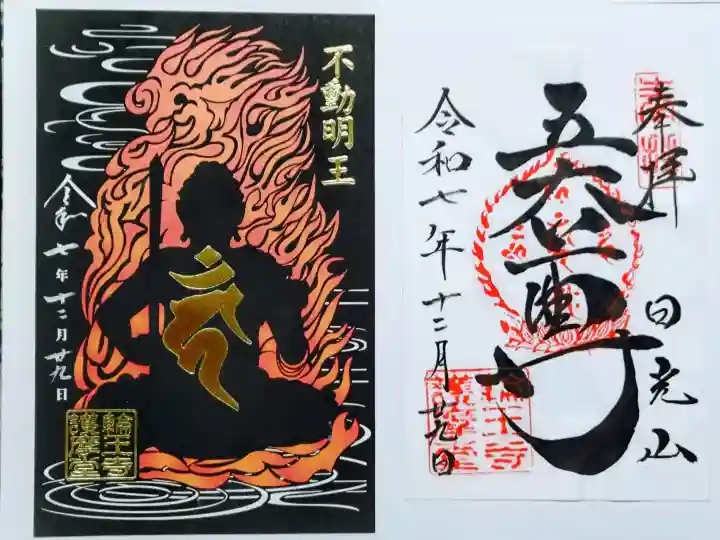 不動明王
令和七年十二月廿九日
輪王寺
護摩堂
奉拝
日光山
五大尊
令和七年十二月廿九日